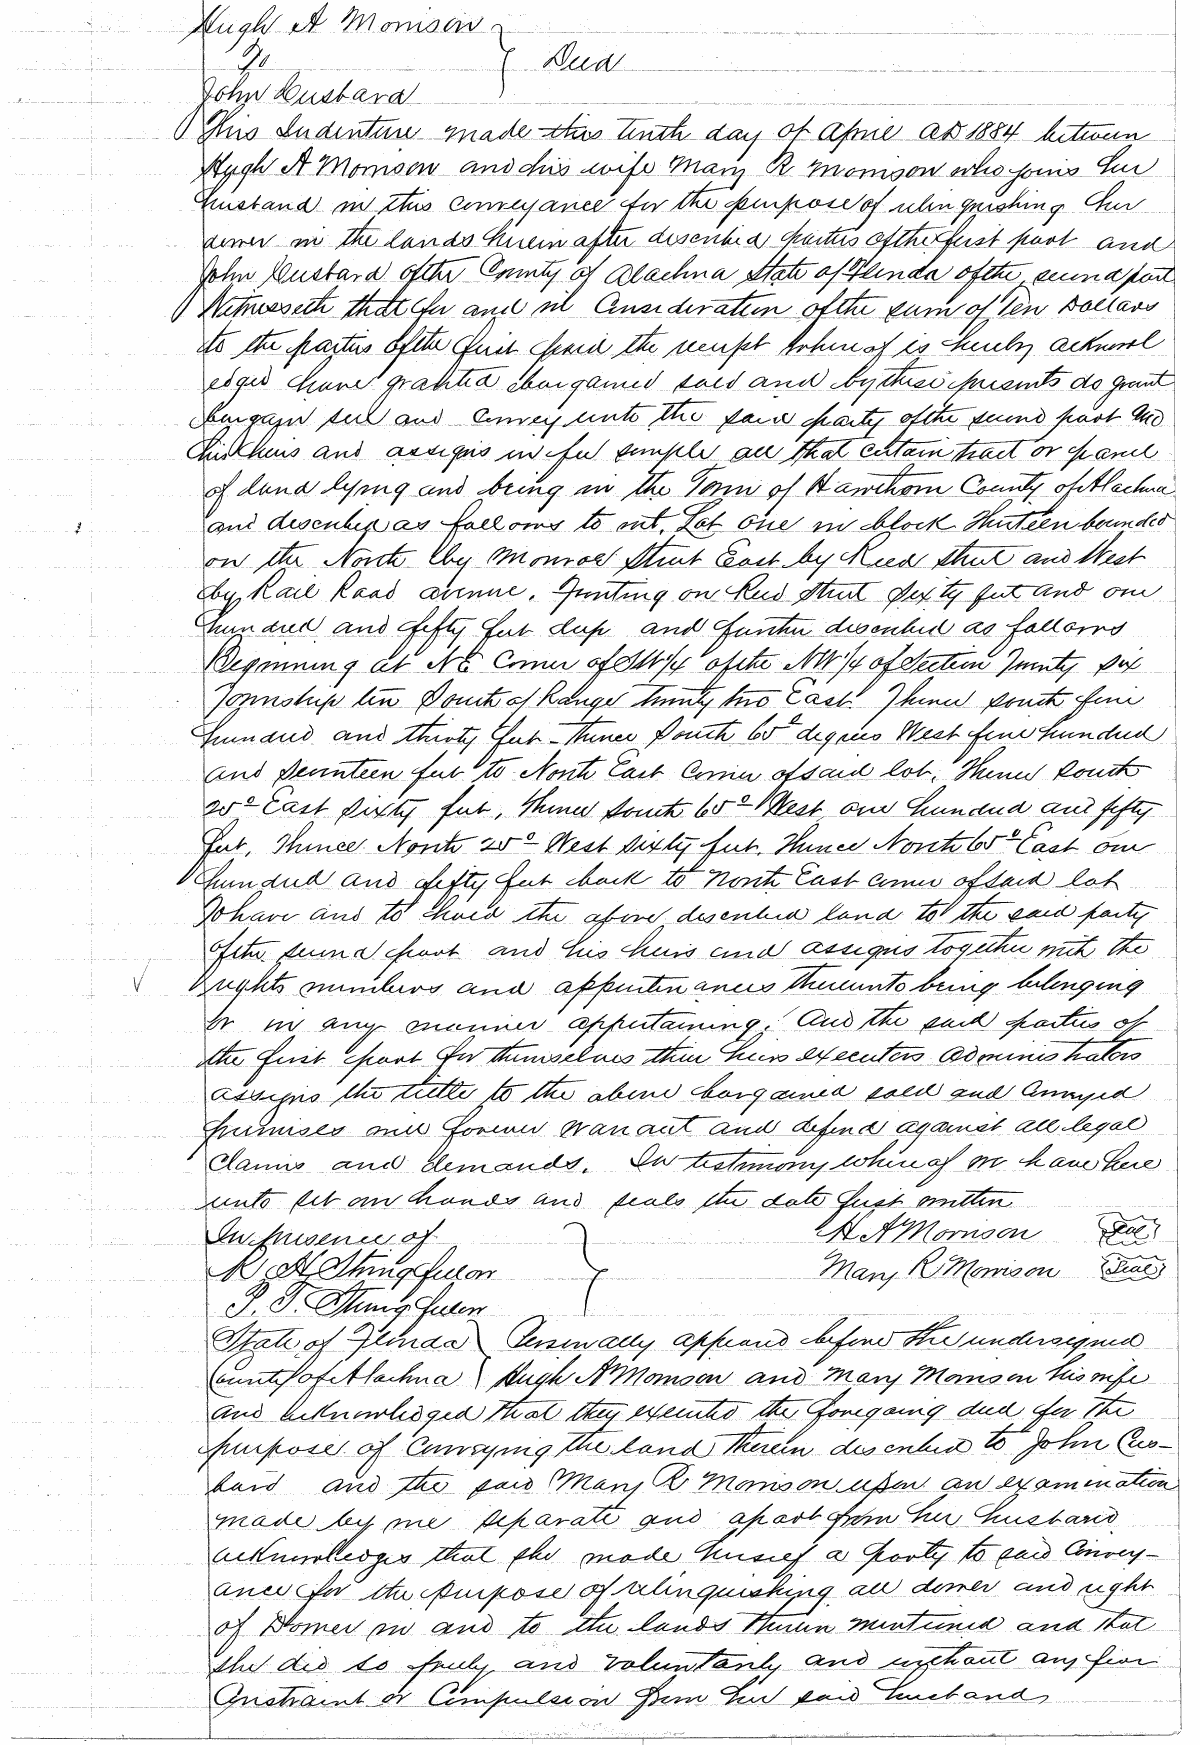 Hugh A Morrison
To } Deed
John Custard
This Indenture made this tenth day of April AD 1884 between
Hugh A Morrison and his wife Mary R Morrison who joins her
husband in this conveyance for the purpose of relinquishing her
dower in the lands herein after described parties of the first part and
John Custard of the County of Alachua State of Florida of the second part
Witnesseth that for and in Consideration of the sum of Ten Dollars
to the parties of the first paid the receipt whereof is hereby acknowl
edged have granted bargained sold and by these presents do grant
bargain sell and convey unto the said party of the second part and
his heirs and assigns in fee simple all that certain tract or parcel
of land lying and being in the Town of Hawthorn County of Alachua
and described as follows to wit. Lot One in block Thirteen bounded
on the North by Monroe Street East by Reed Street and West
by Rail Road avenue. Fronting on Reed Street Sixty feet and one
hundred and fifty feet deep and further described as follows
Beginning at NE Corner of SW 1/4 of the NW 1/4 of Section Twenty six
Township ten South of Range twenty two East. Thence south five
hundred and thirty feet - thence South 65° degrees West five hundred
and Seventeen feet to North East Corner of said lot. Thence South
25° East Sixty feet, Thence South 65° West one hundred and fifty
feet, Thence North 25° West Sixty feet. Thence North 65° East one
hundred and fifty feet back to North East corner of said lot
To have and to hold the above described land to the said party
of the second part and his heirs and assigns together with the
rights members and appurtenances thereunto being belonging
or in any manner appertaining. And the said parties of
the first part for themselves their heirs executors administrators
assigns the tittle to the above bargained sold and conveyed
premises will forever warrant and defend against all legal
Claims and demands. In testimony whereof we have here
unto set our hands and seals the date first written
In presence of } H A Morrison Seal
R. H Stringfellow Mary R Morrison Seal
P. T. Stringfellow
State of Florida } Personally appeared before the undersigned
County of Alachua } Hugh A Morrison and Mary Morrison his wife
and acknowledged that they executed the foregoing deed for the
purpose of Conveying the land therein described to John Cus-
tard and the said Mary R Morrison upon an examination
made by me separate and apart from her husband
acknowledges that she made herself a party to said Convey-
ance for the purpose of relinquishing all dower and right
of Dower in and to the lands therein mentioned and that
she did so freely and voluntarily and without any fear
Constraint or Compulsion from her said husband,